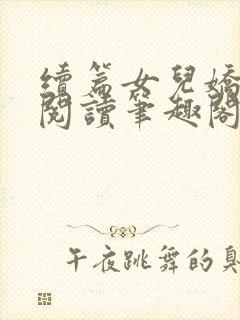 續篇女兒嬌
閱讀筆趣閣
午夜跳舞的臭